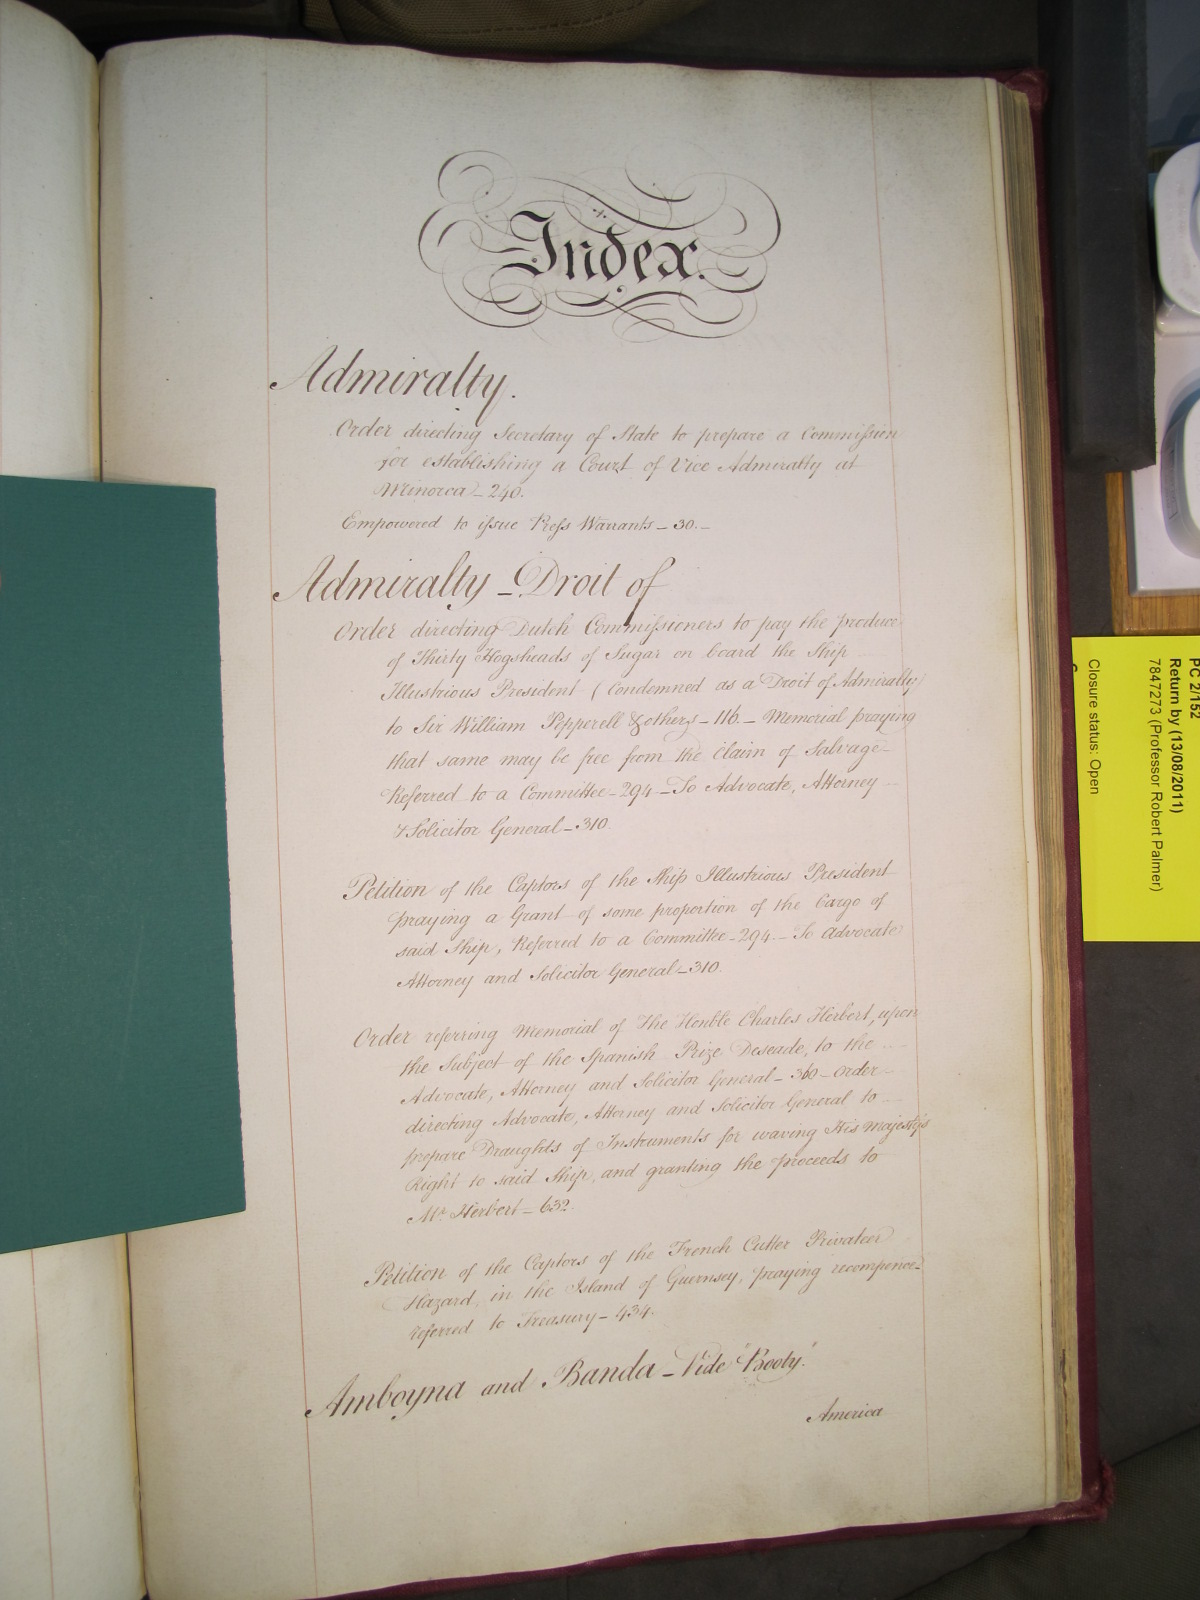 Index.
Admiralty.
Order directing Secretary of State to prepare a Commission
for establishing a Court of Vice Admiralty at
Minorca - 240.
Empowered to issue Press Warrants - 30. -
Admiralty - Droit of
Order directing Dutch Commissioners to pay the produce
of Thirty Hogsheads of Sugar on board the Ship
Illustrious President (Condemned as a Droit of Admiralty)
to Sir William Pepperell & others - 116. - Memorial praying
that same may be free from the Claim of Salvage -
Referred to a Committee - 294 - To Advocate, Attorney
& Solicitor General - 310
Petition of the Captors of the Ship Illustrious President
praying a Grant of some proportion of the Cargo of
said Ship, Referred to a Committee - 294. - To Advocate
Attorney and Solicitor General - 310.
Order referring Memorial of The Honble Charles Herbert, upon
the Subject of the Spanish Prize Deseade, to the
Advocate, Attorney and Solicitor General - 360 - Order
directing Advocate, Attorney and Solicitor General to
prepare Draughts of Instruments for waving His Majesty's
Right to said Ship, and granting the proceeds to
Mr. Herbert - 632.
Petition of the Captors of the French Cutter Privateer
Hazard, in the Island of Guernsey, praying recompence -
referred to Treasury - 434.
Amboyna and Banda - Vide "Booty."
America
PC 2/152
Return by (13/08/2011)
7847273 (Professor Robert Palmer)
Closure status: Open